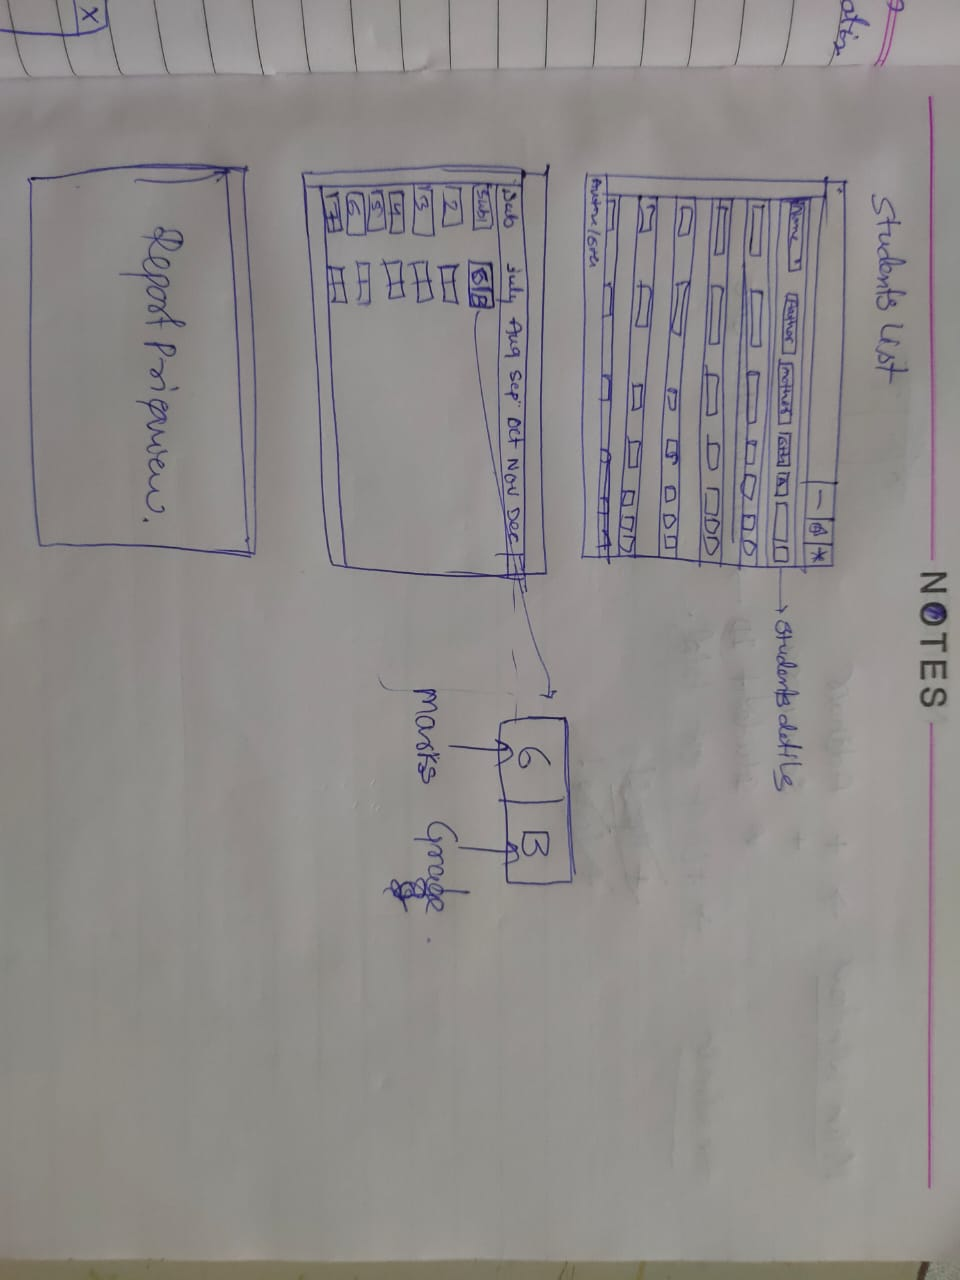 NOTES
Students List
Name Father Mother
→ Students detile
Sub July Aug Sep Oct Nov Dec
Sub1 6 B
2
3
4
5
6
7
6 B
Marks Grade.
Report Priqwew.
X